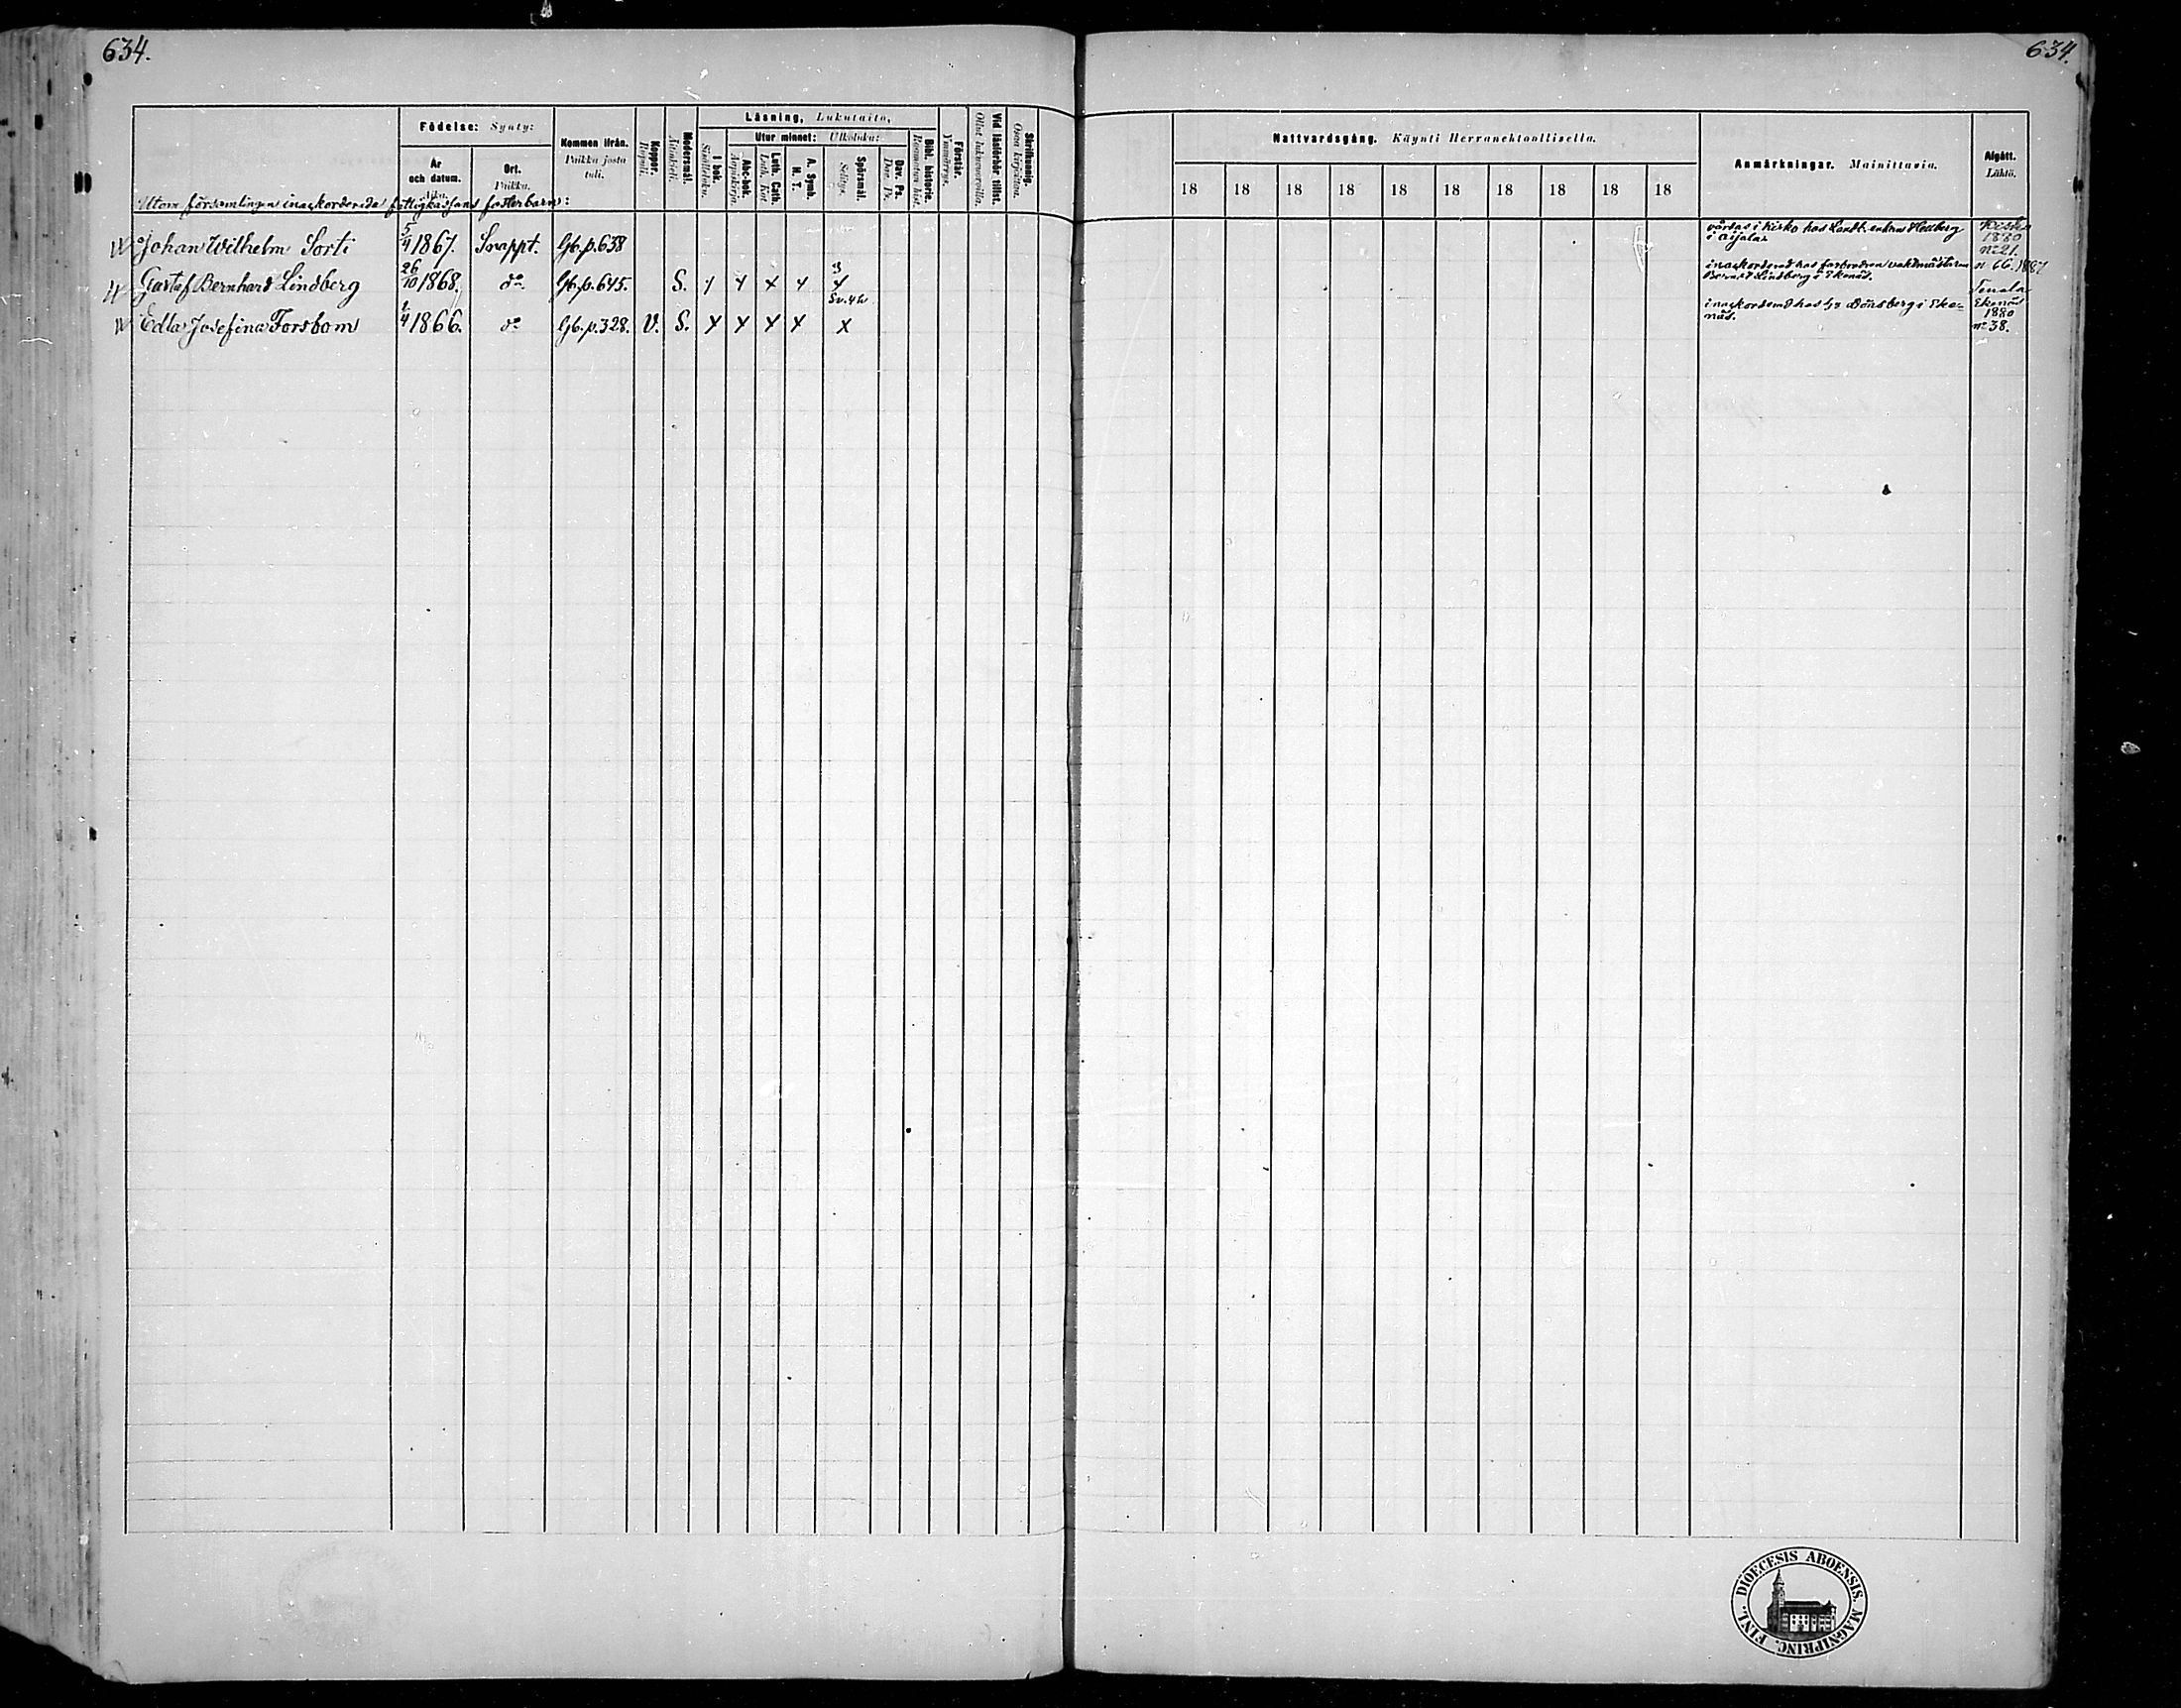 634.
634.
Födelse: Synty:
År och datum. Aika.
Ort. Paikka.
Kommen ifrån. Paikka josta tuli.
Koppor. Rupuli.
Modersmål. Äidinkieli.
Läsning, Lukutaito,
I bok. Sisältäluku.
Utur minnet: Ulkoluku:
Abc-bok. Aapiskirja.
Luth. Cath. Luth. Kat
A. Symb. H. T.
Spörsmål. Selitys.
Dav. Ps. Dav. Ps.
Bibl. historie. Raamatun hist.
Förstår. Ymmärrys.
Vid läsförhör tillst. Ollut lukuvuorolla.
Skrifkunnig. Osaa kirjoittaa.
Nattvardsgång. Käynti Herranehtoollisella.
18 18 18 18 18 18 18 18 18 18
Anmärkningar. Mainittavia.
Afgått. Lähtö.
Utom församlingen inackorderda fattigkassans fosterbarn:
Johan Wilhelm Sorti 5/4 1867. Snappt. Gb. p. 638
vårdas i Kisko hos Landb. enkan Hellberg
i Aijala.
Kisko
1880
no 21.
Gustaf Bernhard Lindberg 26/10 1868. do Gb. p. 645. S. x x x x 3 x
Sv. 4 h
inackorderad hos farbrodren vaktmästaren
Bernhd Lindberg i Ekenäs.
n 66. 1887
Tenala
Edla Josefina Forsbom 2/4 1866. do Gb. p. 328. V. S. x x x x x
inackorderad hos Lönsberg i Eke-
näs.
Ekenäs
1880
no 38.
FINL. DIOECESIS ABOENSIS MAGNIPRINC.